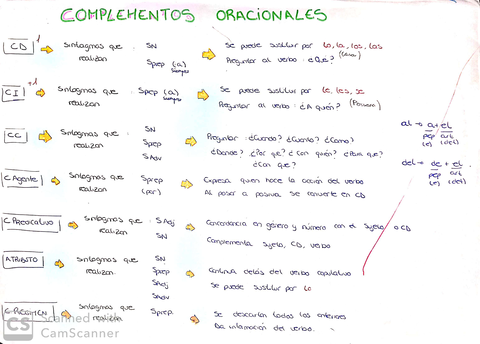 COMPLEMENTOS ORACIONALES
CD 1 Sintagmas que realizan SN Se puede sustituir por lo, la, los, las
Sprep (a) Preguntar al verbo: ¿Qué?
CI +1 Sintagmas que realizan Sprep (a) siempre Se puede sustituir por le, les, se
Preguntar al verbo: ¿A quién? (Persona)
CC Sintagmas que realizan SN Preguntar: ¿Cuándo? ¿Cuánto? ¿Cómo?
Sprep ¿Dónde? ¿Por qué? ¿Con quién? ¿Para qué?
SAdv ¿Con que?
al → a + el
prep art
(e) (det)
del → de + el
prep art
(e) (det)
C.Agente Sintagmas que realizan Sprep (por) Expresa quien hace la acción del verbo
Al pasar a pasiva se convierte en CD
C.Predicativo Sintagmas que realizan SAdj Concordancia en género y número con el sujeto o CD
SN Complementa sujeto, CD, verbo
ATRIBUTO Sintagmas que realizan SN
Sprep Continua detrás del verbo copulativo
SAdj Se puede sustituir por lo
SAdv
C.REGIMEN Sintagmas que realizan Sprep Se descartan todos los anteriores
Da información del verbo.
CS Scanned with
CamScanner